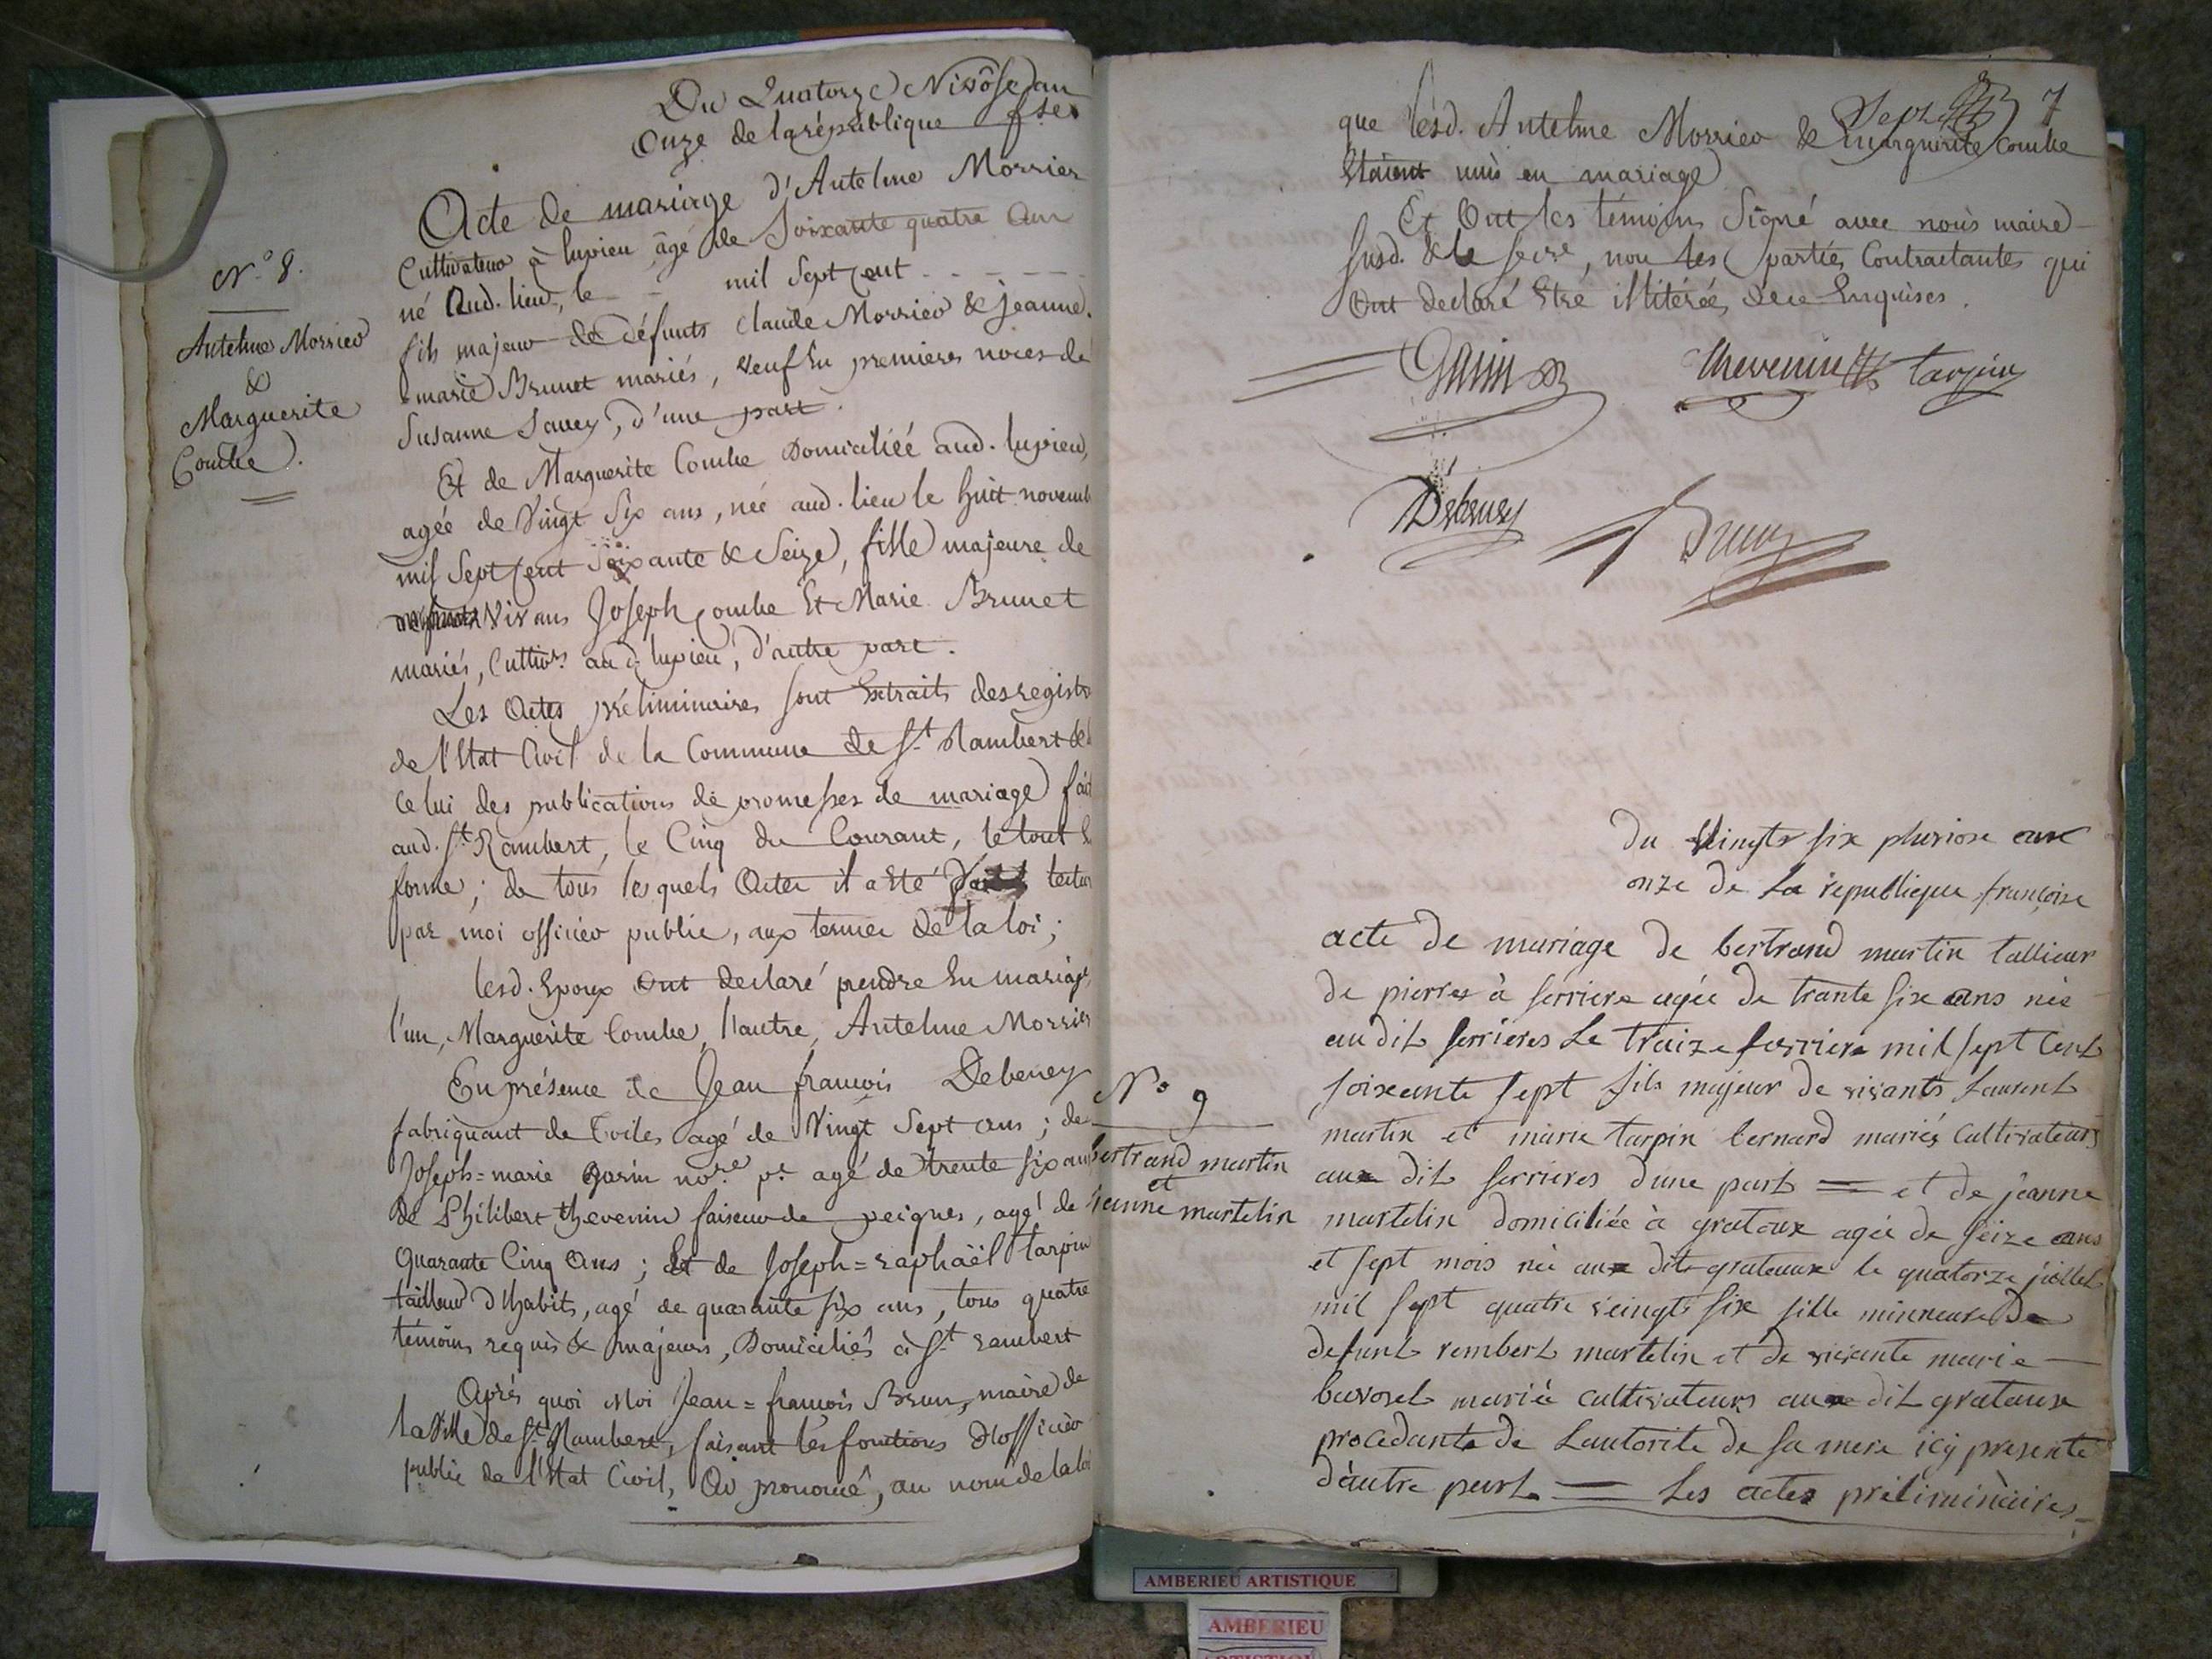 Du Quatorze Nivôse an
Onze de la république fse
N.° 8.
Antelme Morrier
&
Marguerite
Combe.
Acte de mariage d'Antelme Morrier
Cultivateur à lupieu âgé de Soixante quatre Ans
né Aud. lieu, le - - mil Sept Cent - - - - -
fils majeur de défunts Claude Morrier & jeanne
marie Brunet mariés, veuf En premieres noces de
Susanne Savey, d'une part.
Et de Marguerite Combe Domiciliée aud. lupieu,
agée de Vingt Six ans, née aud. lieu le huit novemb
mil Sept Cent Soixante & Seize, fille majeure de
Vivans Joseph Combe Et Marie Brunet
mariés, Cultivrs aud. lupieu, d'autre part.
Les Actes préliminaires sont Extraits des registre
de l'Etat Civil de la Commune de St. Rambert & d
Celui des publications de promesses de mariage fait
aud. St. Rambert, le Cinq du Courant, le tout E
forme; de tous lesquels Actes il a été lectur
par moi officier public, aux termes de la loi;
lesd. Epoux Ont declaré prendre En mariage,
l'un, Marguerite Combe, l'autre, Antelme Morrier
En présence de Jean françois Debeney
fabriquant de Toiles agé de Vingt Sept ans; de
Joseph=marie Garin nore. pc. agé de trente six ans
de Philibert thevenin faiseur de peignes, agé de
quarante Cinq Ans; Et de Joseph=raphaël tarpin
tailleur d'habits, agé de quarante six ans, tous quatre
témoins requis & majeurs, Domiciliés à St rambert
Après quoi Moi Jean=françois Brun, maire de
la Ville de St. Rambert, faisant les fonctions d'officier
public de l'Etat Civil, Ai prononcé, au nom de la loi
7
que lesd. Antelme Morrier & Marguerite Combe
Etaient unis en mariage
Et Ont les témoins Signé avec nous maire
susd. & le secre, non les parties Contractantes qui
Ont declaré Etre illitérés, de ce Enquises.
Garin thevenin tarpin
Debeney Brun
du veingts six pluviose ans
onze de La republique françoise
N° 9
bertrand martin
et
jeanne martelin
acte de mariage de bertrand martin tallieur
de pierres à serriere agée de trante six ans née
audit serrieres Le traize ferriere mil sept Cent
soixeante sept fils majeur de vivants Laurent
martin et marie tarpin bernard mariés Cultivateurs
aux dit serrieres d'une part = et de jeanne
martelin domiciliée à grataux agée de seize ans
et sept mois née aux dits grataux le quatorze juillet
mil sept quatre veingts six fille minneure de
defunt rembert martelin et de vivante marie
bavoset mariés cultivateurs aux dit grataux
procedante de L'autorite de sa mere icy presente
d'autre part = Les actes préliminaires
AMBERIEU ARTISTIQUE
AMBERIEU
ARTISTIQUE